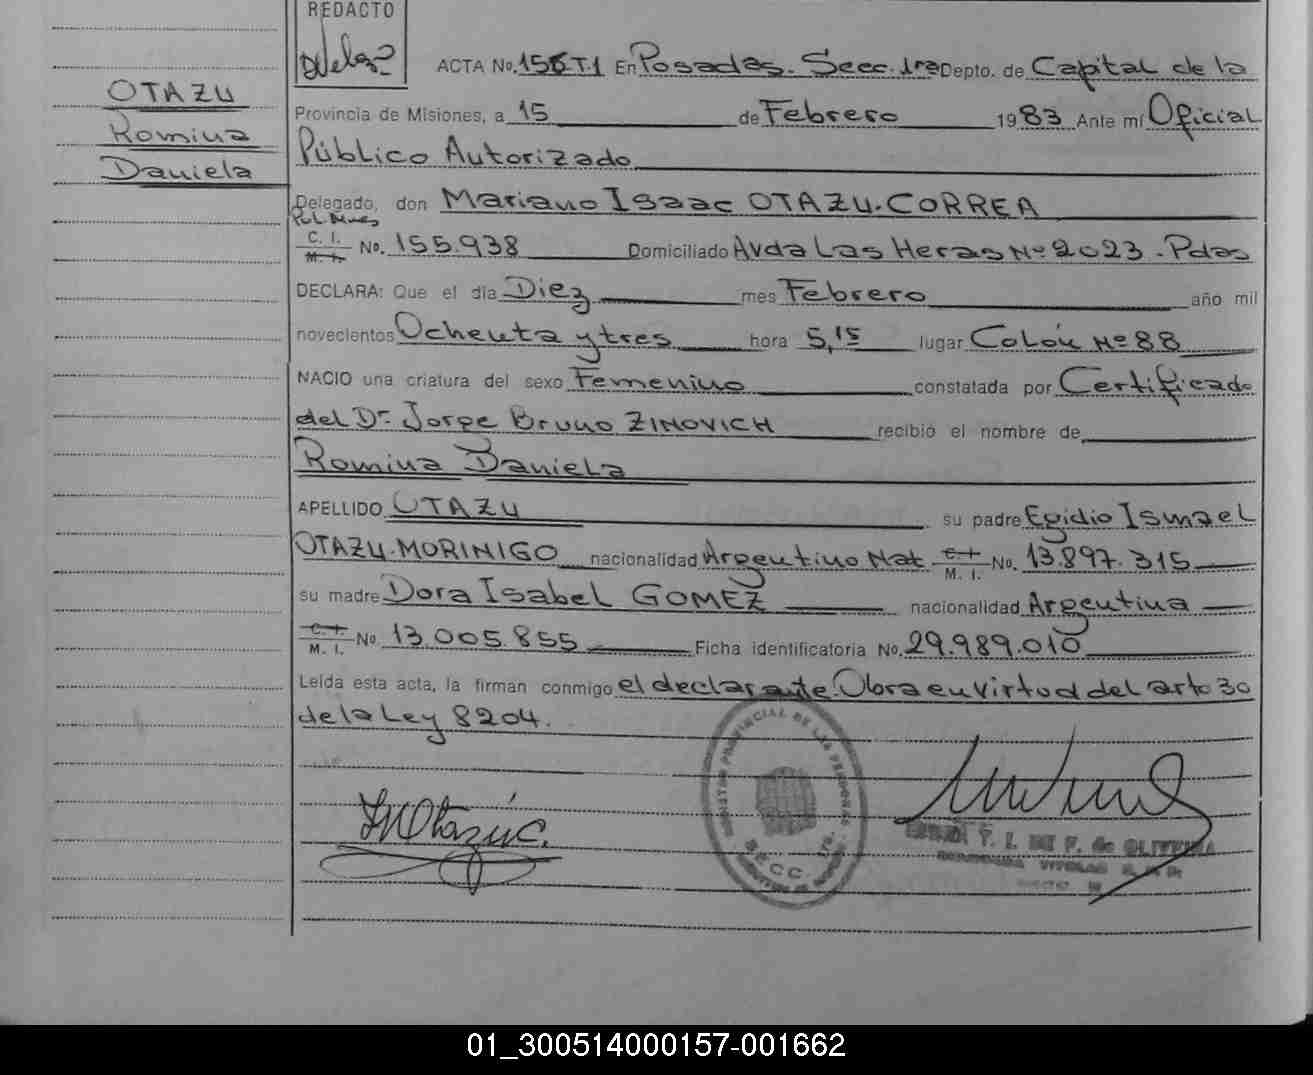 REDACTO
OTAZU
Romina
Daniela
ACTA No. 156 T.1 En Posadas. Secc. 1ra Depto. de Capital de la
Provincia de Misiones, a 15 de Febrero 1983 Ante mí Oficial
Público Autorizado
Delegado, don Mariano Isaac OTAZU-CORREA
C. I.
M. I. No. 155.938 Domiciliado Avda Las Heras Nº 2023 - Pdas
DECLARA: Que el día Diez mes Febrero año mil
novecientos Ochenta y tres hora 5,15 lugar Colón Nº 88
NACIO una criatura del sexo Femenino constatada por Certificado
del Dr. Jorge Bruno ZINOVICH recibió el nombre de
Romina Daniela
APELLIDO OTAZU su padre Egidio Ismael
OTAZU-MORINIGO nacionalidad Argentino Nat C. I. M. I. No. 13.897.315
su madre Dora Isabel GOMEZ nacionalidad Argentina
C. I. M. I. No. 13.005.855 Ficha identificatoria No. 29.989.010
Leída esta acta, la firman conmigo el declarante. Obra en virtud del arto 30
de la Ley 8204.
SECC. 1ra.
01_300514000157-001662